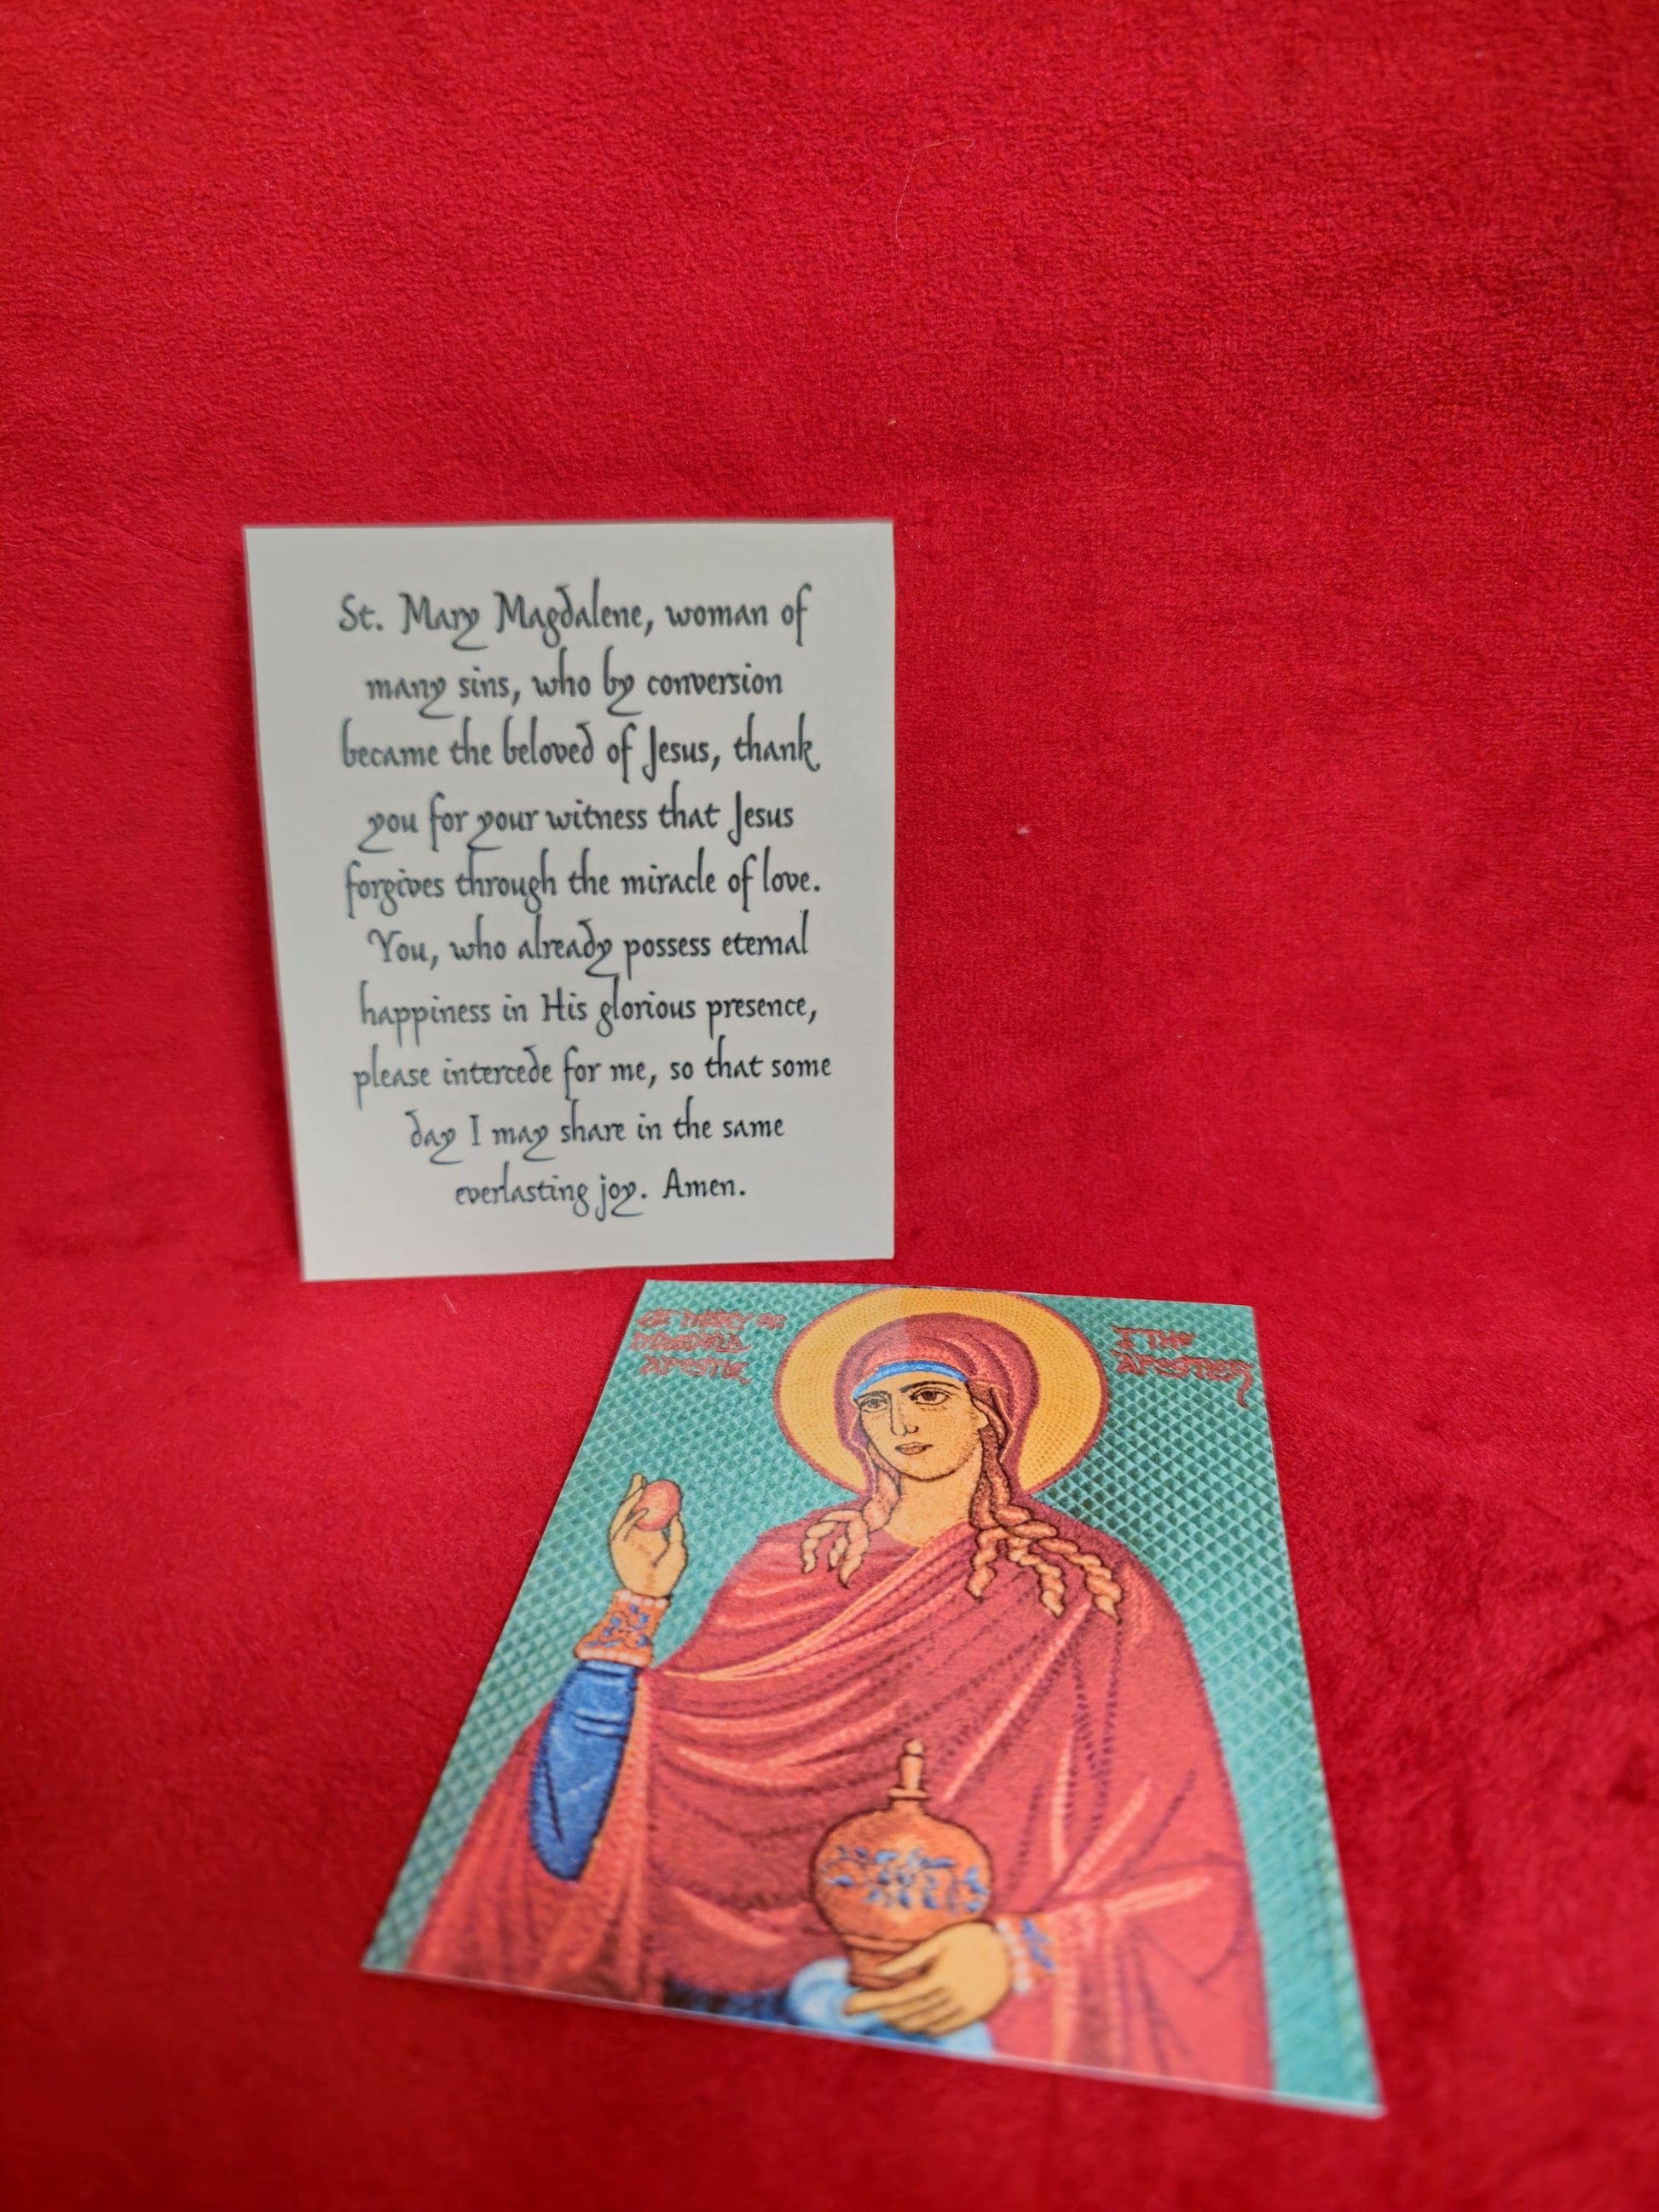 St. Mary Magdalene, woman of
many sins, who by conversion
became the beloved of Jesus, thank
you for your witness that Jesus
forgives through the miracle of love.
You, who already possess eternal
happiness in His glorious presence,
please intercede for me, so that some
day I may share in the same
everlasting joy. Amen.
THE